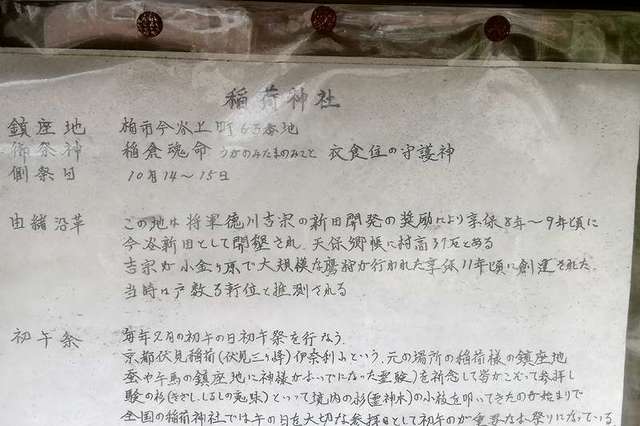 稲荷神社
鎮座地 柏市今谷上町63番地
御祭神 稲倉魂命 うかのみたまのみこと 衣食住の守護神
例祭日 10月14〜15日
由緒沿革 この地は将軍徳川吉宗の新田開発の奨励により享保8年〜9年頃に
今谷新田として開墾され、天保郷帳に村高37石とある
吉宗が小金ヶ原で大規模な鷹狩が行われた享保11年頃に創建された、
当時は戸数る軒位と推測される
初午祭 毎年2月の初午の日初午祭を行なう、
京都伏見稲荷(伏見三ヶ峰)伊奈利山という、元の場所の稲荷様の鎮座地
蚕や午馬の鎮座地に神様がおいでになった霊験)を祈念して皆がこぞって参拝し
験の杉(きざし、しるしの意味)といって境内の杉(霊神木)の小枝を叩いてきたのが始まりで
全国の稲荷神社では午の日を大切な参拝日として初午のが重要なお祭りになっている